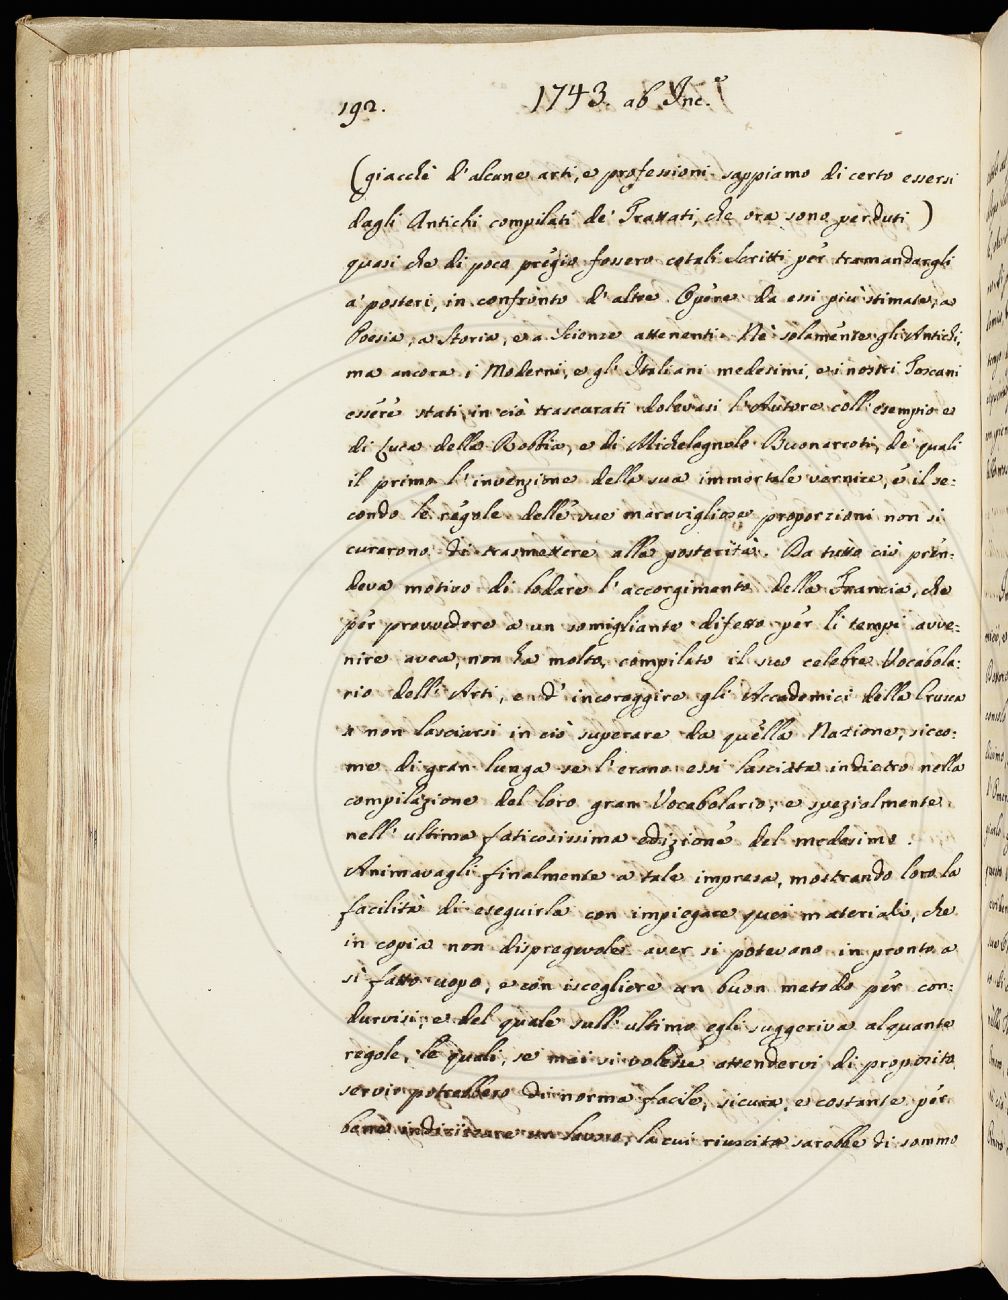 192.
1743. ab Inc.e
(giacchè d'alcune arti, e professioni sappiamo di certo essersi
dagli Antichi compilati de' Trattati, che ora sono perduti)
quasi che di poco pregio fossero cotali Scritti per tramandargli
a' posteri, in confronto d'altre Opere da essi più stimate, a
Poesia, a Storia, e a Scienze attenenti. Nè solamente gli Antichi,
ma ancora i Moderni, e gl'Italiani medesimi, e i nostri Toscani
essere stati in ciò trascurati dolevasi l'Autore coll'esempio e
di Luca della Robbia, e di Michelagnolo Buonarroti, de' quali
il primo l'invenzione della sua immortale vernice, e il se:
condo le regole delle sue maravigliose proporzioni non si
curarono di trasmettere alla posterità. Da tutto ciò pren:
deva motivo di lodare l'accorgimento della Francia, che
per provvedere a un somigliante difetto per li tempi avve:
nire avea, non ha molto, compilato il suo celebre Vocabola:
rio dell'Arti, e d'incoraggire gli Accademici della Crusca
a non lasciarsi in ciò superare da quella Nazione, sicco:
me di gran lunga se l'erano essi lasciata indietro nella
compilazione del loro gran Vocabolario, e spezialmente
nell'ultima faticosissima edizione del medesimo.
Animavagli finalmente a tale impresa, mostrando loro la
facilità di eseguirla con impiegare quei materiali, che
in copia non dispregevole aver si potevano in pronto a
sì fatto uopo, e con iscegliere un buon metodo per con:
durvisi; e del quale sull'ultimo egli suggeriva alquante
regole, le quali, se mai si volesse attendervi di proposito,
servir potrebbero di norma facile, sicura, e costante per
bene indirizzare un lavoro, la cui riuscita sarebbe di sommo